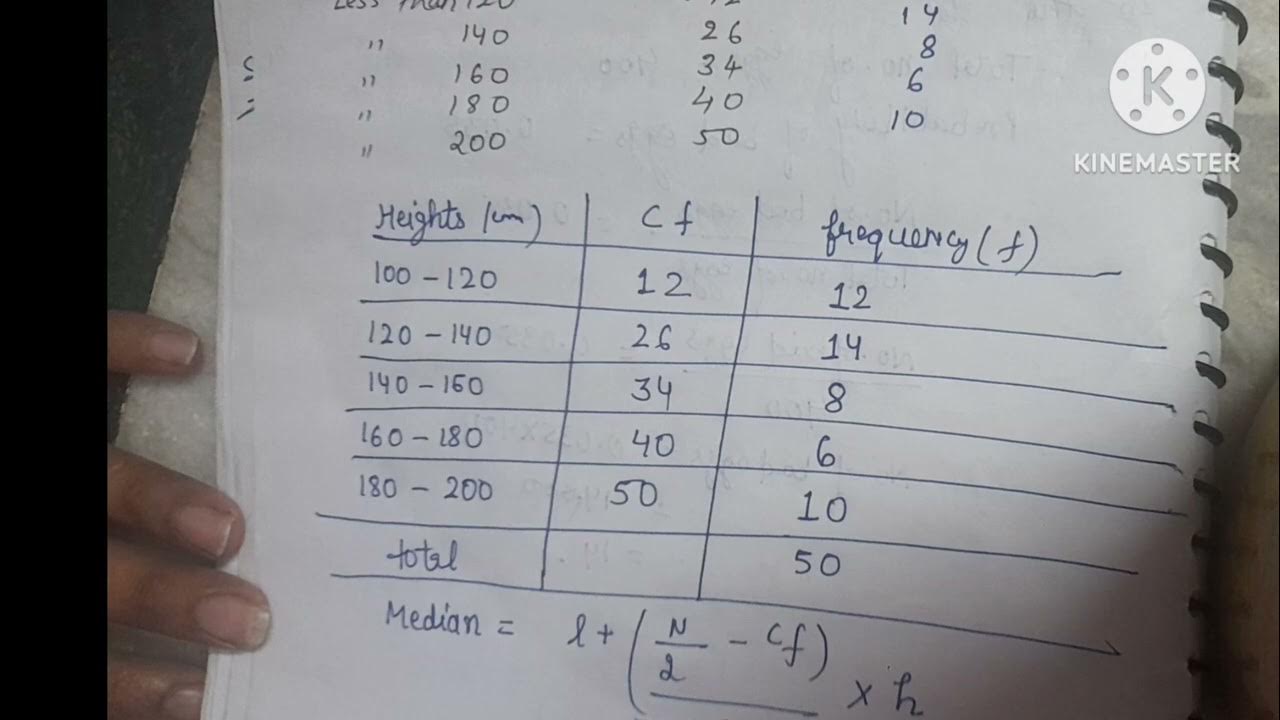 Less than 120 12
" 140 26 14
" 160 34 8
" 180 40 6
" 200 50 10
K
KINEMASTER
Heights (cm) Cf frequency (f)
100 - 120 12 12
120 - 140 26 14
140 - 160 34 8
160 - 180 40 6
180 - 200 50 10
total 50
Median = l + (N/2 - Cf) × h